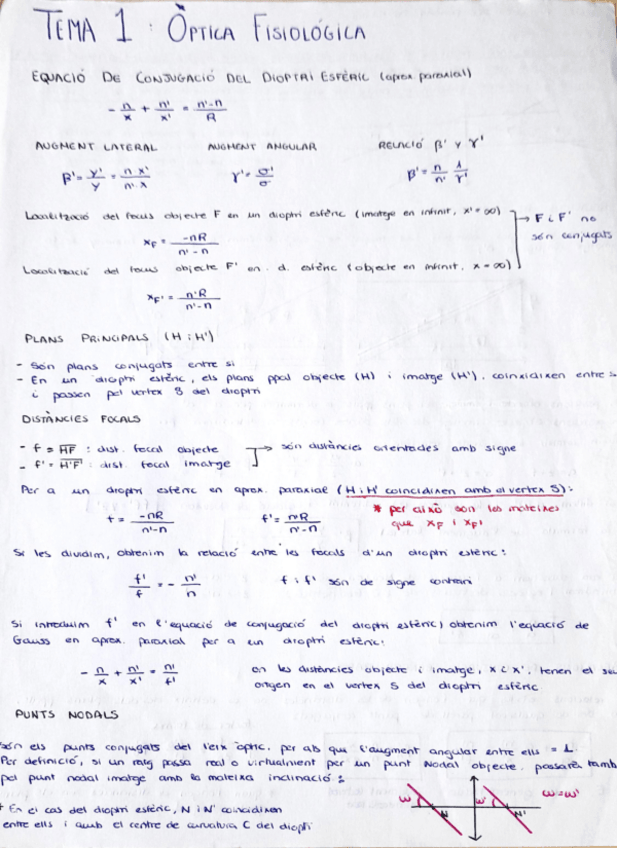 TEMA 1 : ÒPTICA FISIOLÓGICA
EQUACIÓ DE CONJUGACIÓ DEL DIOPTRI ESFÈRIC (aprox. paraxial)
- n/x + n'/x' = n'-n/R
AUGMENT LATERAL AUGMENT ANGULAR RELACIÓ β' Y γ'
β' = y'/y = n x'/n' x γ' = σ'/σ β' = n/n' 1/γ'
Localització del focus objecte F en un dioptri esfèric (imatge en infinit, x' = ∞)
→ F i F' no són conjugats
x_F = -nR/n'-n
Localització del focus objecte F' en d. esfèric (objecte en infinit, x = ∞)
x_F' = n'R/n'-n
PLANS PRINCIPALS (H i H')
- Són plans conjugats entre si
- En un dioptri esfèric, els plans ppal objecte (H) i imatge (H'). coincidixen entre s
i passen pel vertex S del dioptri
DISTÀNCIES FOCALS
- f = HF : dist. focal objecte
- f' = H'F' : dist. focal imatge
→ són distàncies orientades amb signe
Per a un dioptri esfèric en aprox. paraxial (H i H' coincidixen amb el vertex S):
f = -nR/n'-n f' = n'R/n'-n
* per això són les mateixes
que x_F i x_F'
Si les dividim, obtenim la relació entre les focals d'un dioptri esfèric:
f'/f = - n'/n f i f' són de signe contrari
Si introduim f' en l'equació de conjugació del dioptri esfèric) obtenim l'equació de
Gauss en aprox. paraxial per a un dioptri esfèric:
- n/x + n'/x' = n'/f'
on les distàncies objecte i imatge, x i x', tenen el seu
origen en el vertex S del dioptri esfèric
PUNTS NODALS
són els punts conjugats del l'eix òptic. per als que l'augment angular entre ells = 1.
Per definició, si un raig passa real o virtualment per un punt Nodal objecte. passarà tamb
pel punt nodal imatge amb la mateixa inclinació :
* En el cas del dioptri esfèric, N i N' coincidixen
entre ells i amb el centre de curvatura C del dioptri
ω N ω' N' ω=ω'